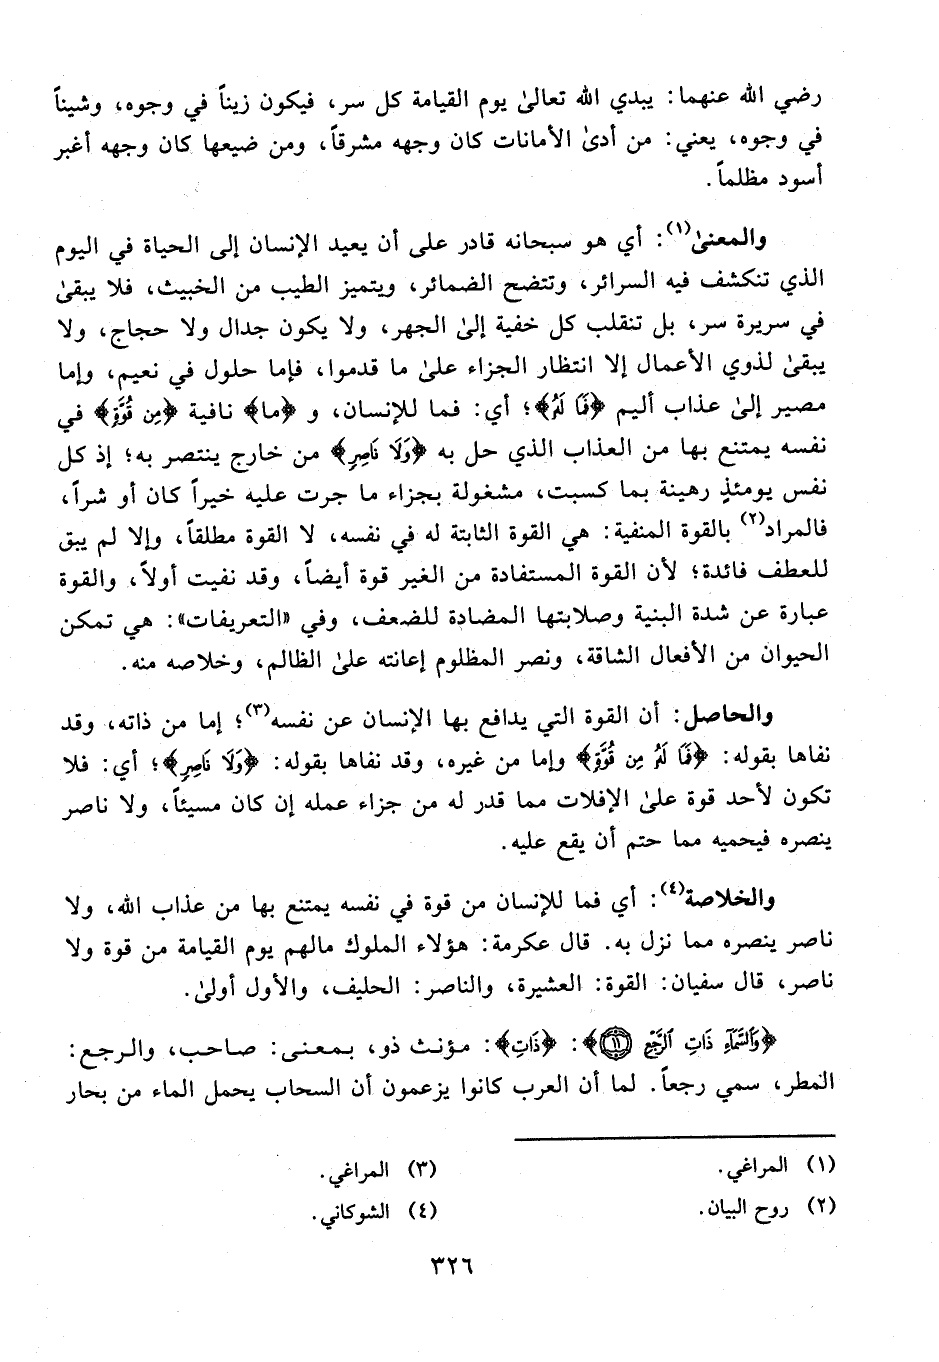 رضي الله عنهما: يبدي الله تعالىٰ يوم القيامة كل سر، فيكون زيناً في وجوه، وشيناً
في وجوه، يعني: من أدىٰ الأمانات كان وجهه مشرقاً، ومن ضيعها كان وجهه أغبر
أسود مظلماً.
والمعنىٰ(١): أي هو سبحانه قادر على أن يعيد الإنسان إلى الحياة في اليوم
الذي تنكشف فيه السرائر، وتتضح الضمائر، ويتميز الطيب من الخبيث، فلا يبقىٰ
في سريرة سر، بل تنقلب كل خفية إلىٰ الجهر، ولا يكون جدال ولا حجاج، ولا
يبقىٰ لذوي الأعمال إلا انتظار الجزاء علىٰ ما قدموا، فإما حلول في نعيم، وإما
مصير إلىٰ عذاب أليم ﴿فَمَا لَهُ﴾؛ أي: فما للإنسان، و ﴿ما﴾ نافية ﴿مِن قُوَّةٍ﴾ في
نفسه يمتنع بها من العذاب الذي حل به ﴿وَلَا نَاصِرٍ﴾ من خارج ينتصر به؛ إذ كل
نفس يومئذٍ رهينة بما كسبت، مشغولة بجزاء ما جرت عليه خيراً كان أو شراً،
فالمراد(٢) بالقوة المنفية: هي القوة الثابتة له في نفسه، لا القوة مطلقاً، وإلا لم يبق
للعطف فائدة؛ لأن القوة المستفادة من الغير قوة أيضاً، وقد نفيت أولاً، والقوة
عبارة عن شدة البنية وصلابتها المضادة للضعف، وفي «التعريفات»: هي تمكن
الحيوان من الأفعال الشاقة، ونصر المظلوم إعانته علىٰ الظالم، وخلاصه منه.
والحاصل: أن القوة التي يدافع بها الإنسان عن نفسه(٣)؛ إما من ذاته، وقد
نفاها بقوله: ﴿فَمَا لَهُ مِن قُوَّةٍ﴾ وإما من غيره، وقد نفاها بقوله: ﴿وَلَا نَاصِرٍ﴾؛ أي: فلا
تكون لأحد قوة علىٰ الإفلات مما قدر له من جزاء عمله إن كان مسيئاً، ولا ناصر
ينصره فيحميه مما حتم أن يقع عليه.
والخلاصة(٤): أي فما للإنسان من قوة في نفسه يمتنع بها من عذاب الله، ولا
ناصر ينصره مما نزل به. قال عكرمة: هؤلاء الملوك مالهم يوم القيامة من قوة ولا
ناصر، قال سفيان: القوة: العشيرة، والناصر: الحليف، والأول أولىٰ.
﴿وَالسَّمَآءِ ذَاتِ ٱلرَّجْعِ ﴿١١﴾﴾: ﴿ذَاتِ﴾: مؤنث ذو، بمعنى: صاحب، والرجع:
المطر، سمي رجعاً. لما أن العرب كانوا يزعمون أن السحاب يحمل الماء من بحار
(١) المراغي.
(٢) روح البيان.
(٣) المراغي.
(٤) الشوكاني.
٣٢٦